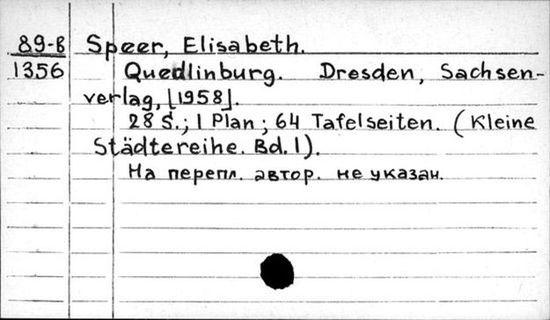 89-В Speer, Elisabeth.
1356 Quedlinburg. Dresden, Sachsen-
verlag, [1958].
28 S.; 1 Plan; 64 Tafelseiten. (Kleine
Städtereihe. Bd. 1).
На перепл. автор. не указан.